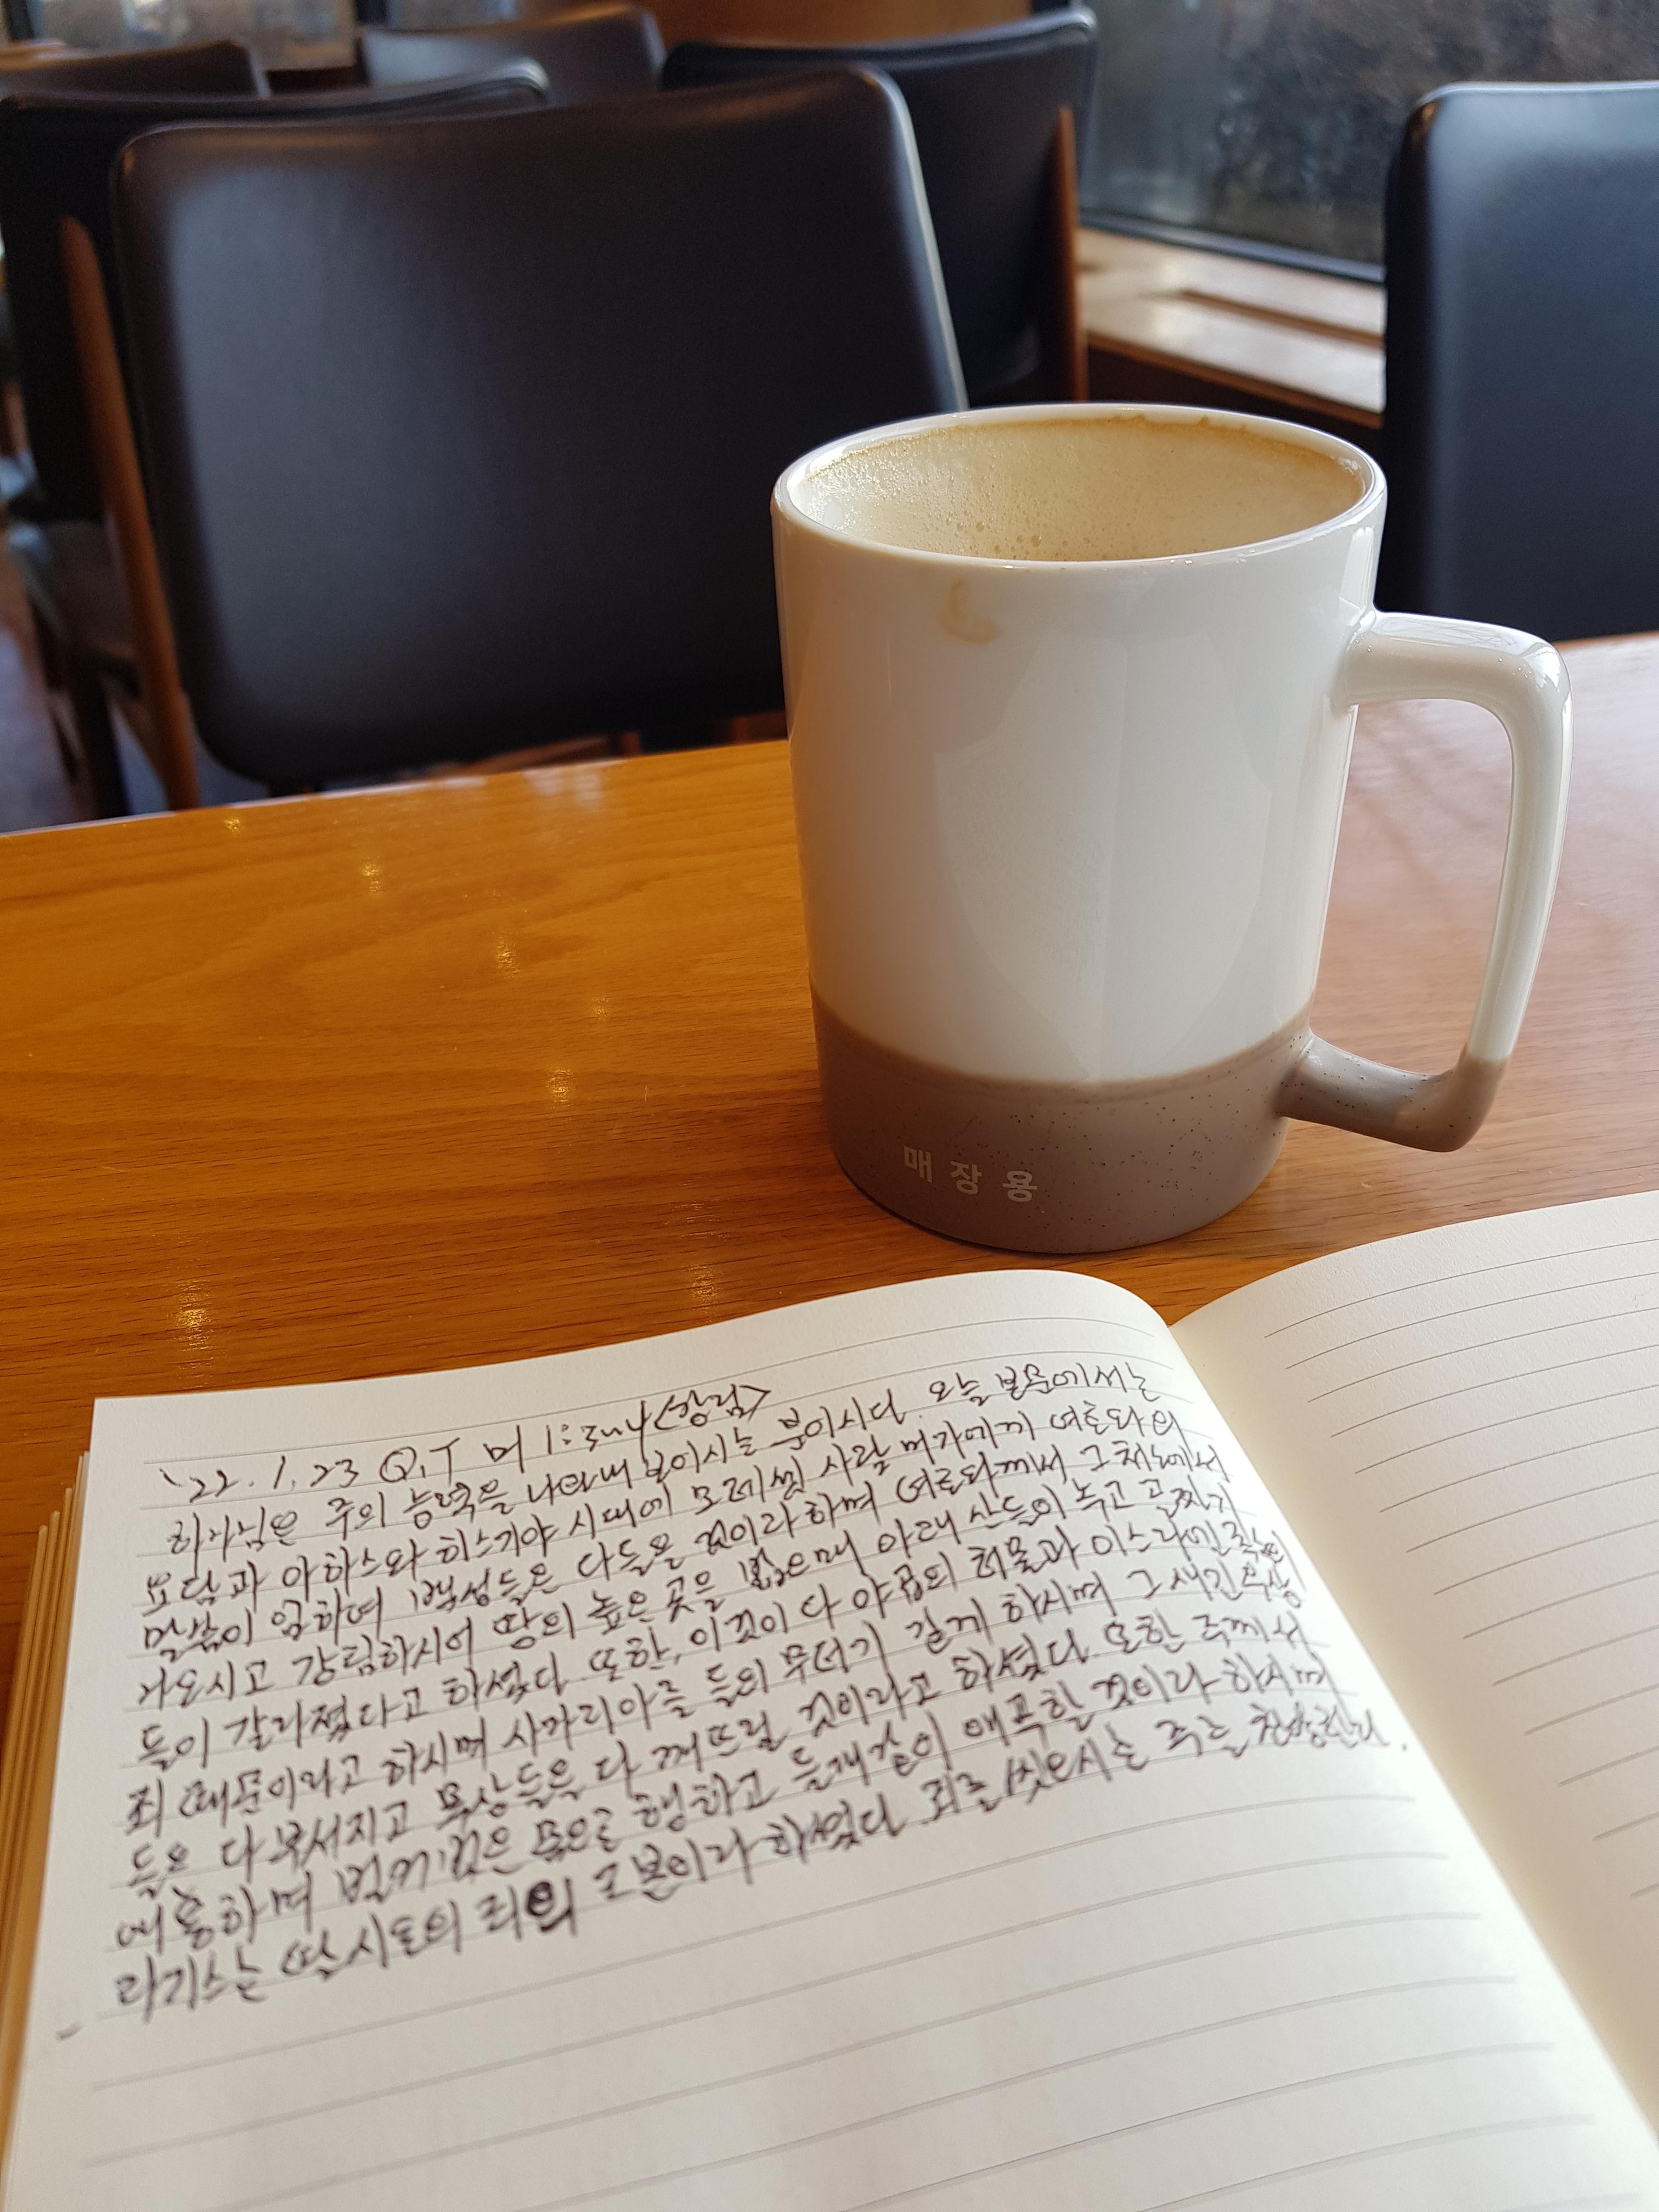 매장용
'22. 1. 23 Q.T 미 1: <강림>
하나님은 주의 능력을 나타내 보이시는 분이시다. 오늘 본문에서는
요담과 아하스와 히스기야 시대에 모레셋 사람 미가에게 여호와의
말씀이 임하여 백성들은 다 들을 것이라 하며 여호와께서 그 처소에서
나오시고 강림하시어 땅의 높은 곳을 밟으매 아래 산들이 녹고 골짜기
들이 갈라졌다고 하셨다. 또한, 이것이 다 야곱의 허물과 이스라엘 족속의
죄 때문이라고 하시며 사마리아를 들의 무더기 같게 하시며 그 새긴 우상
들은 다 부서지고 우상들을 다 깨뜨릴 것이라고 하셨다. 또한 주께서
애통하며 벌거벗은 몸으로 행하고 들개 같이 애곡할 것이라 하시며
라기스는 딸 시온의 죄의 근본이라 하셨다. 죄를 씻으시는 주를 찬송한다.